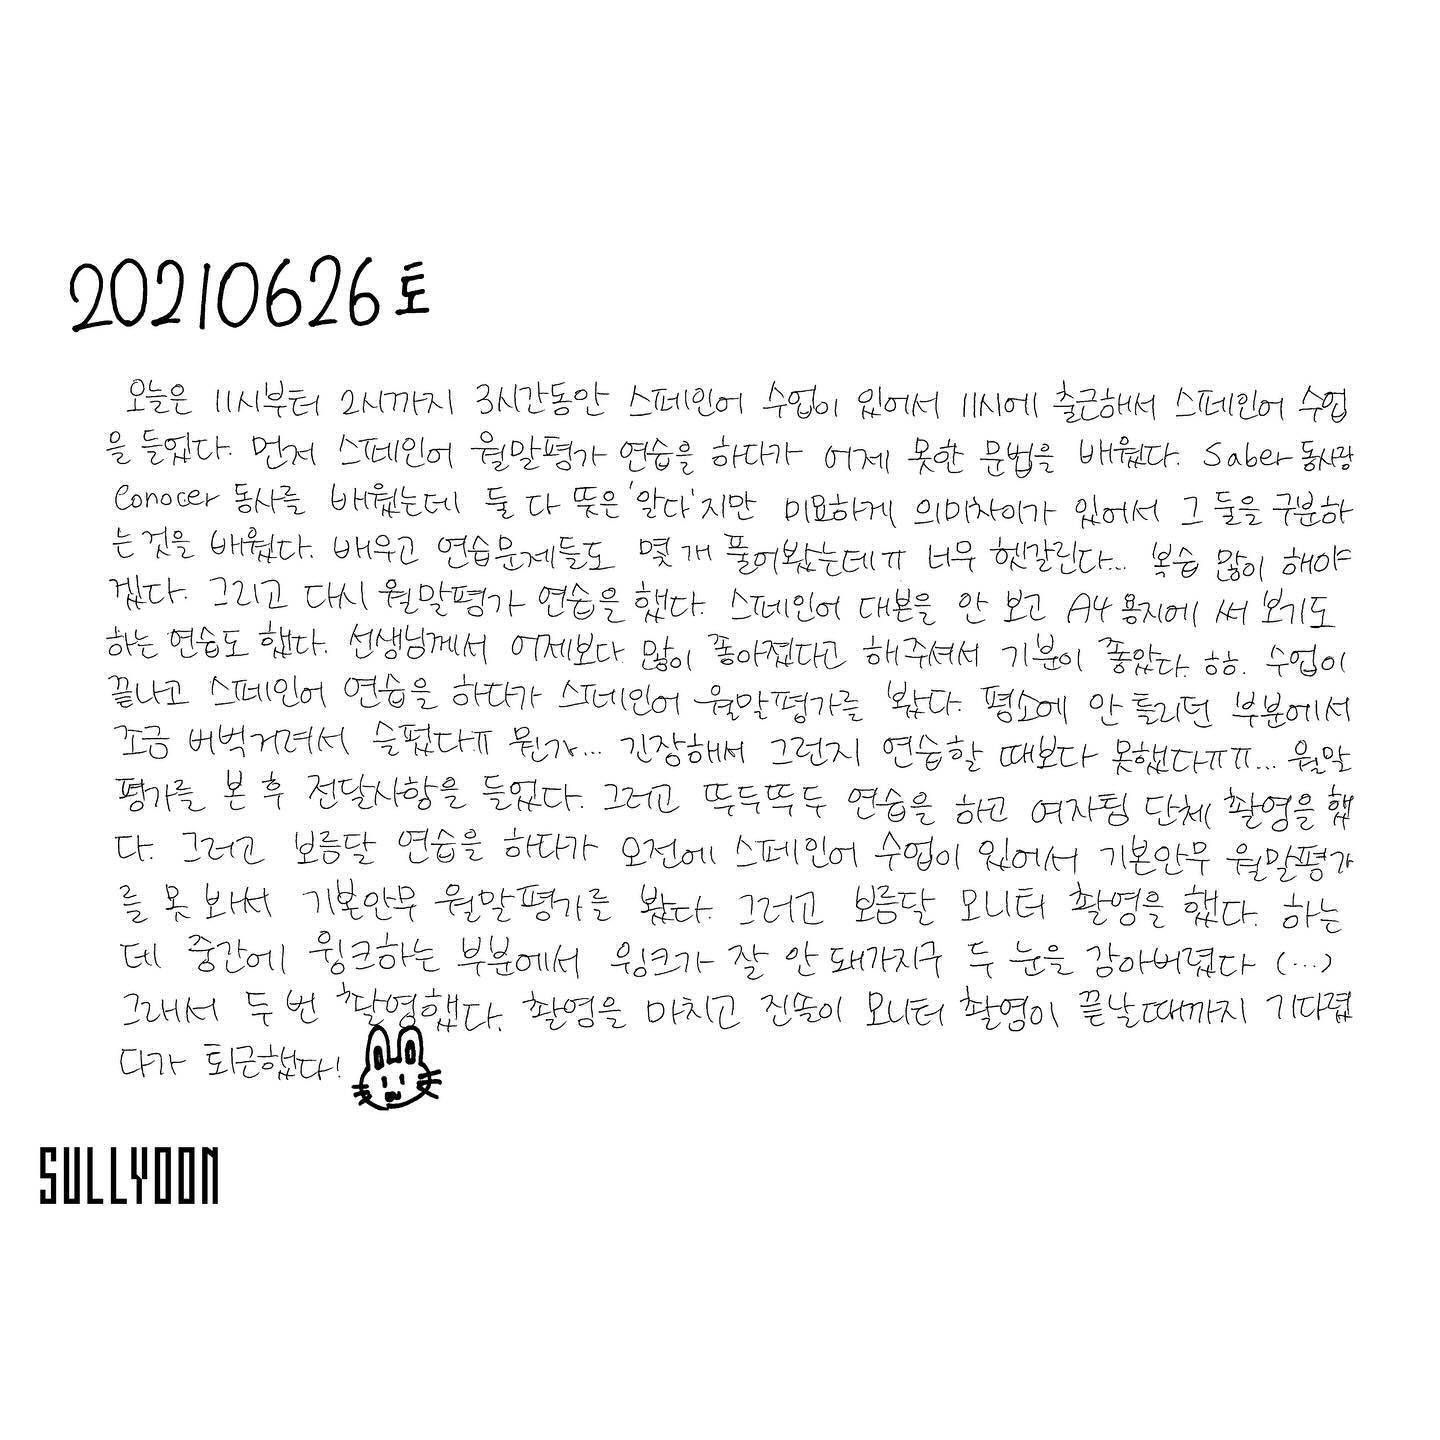 20210626토
오늘은 11시부터 2시까지 3시간동안 스페인어 수업이 있어서 11시에 출근해서 스페인어 수업
을 들었다. 먼저 스페인어 월말평가 연습을 하다가 어제 못한 문법을 배웠다. Saber 동사랑
Conocer 동사를 배웠는데 둘 다 뜻은 '알다'지만 미묘하게 의미차이가 있어서 그 둘을 구분하
는것을 배웠다. 배우고 연습문제들도 몇 개 풀어봤는데ㅠ 너무 헷갈린다... 복습 많이 해야
겠다. 그리고 다시 월말평가 연습을 했다. 스페인어 대본을 안 보고 A4 용지에 써 보기도
하는 연습도 했다. 선생님께서 어제보다 많이 좋아졌다고 해주셔서 기분이 좋았다. ㅎㅎ. 수업이
끝나고 스페인어 연습을 하다가 스페인어 월말평가를 봤다. 평소에 안 틀리던 부분에서
조금 버벅거려서 슬펐다ㅠ 뭔가... 긴장해서 그런지 연습할 때보다 못했다ㅠㅠ... 월말
평가를 본 후 전달사항을 들었다. 그러고 뚜두뚜두 연습을 하고 여자팀 단체 촬영을 했
다. 그러고 보름달 연습을 하다가 오전에 스페인어 수업이 있어서 기본안무 월말평가
를 못 봐서 기본안무 월말평가를 봤다. 그러고 보름달 모니터 촬영을 했다. 하는
데 중간에 윙크하는 부분에서 윙크가 잘 안 돼가지구 두 눈을 감아버렸다 (...)
그래서 두 번 촬영했다. 촬영을 마치고 진솔이 모니터 촬영이 끝날때까지 기다렸
다가 퇴근했다!
SULLYOON